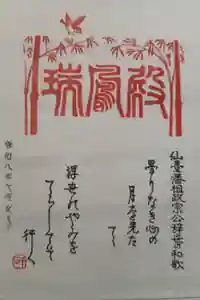 瑞鳳殿
仙臺藩祖政宗公辞世和歌
曇りなき心の
月を先た
てゝ
浮世のやみを
てらしてそ
行く